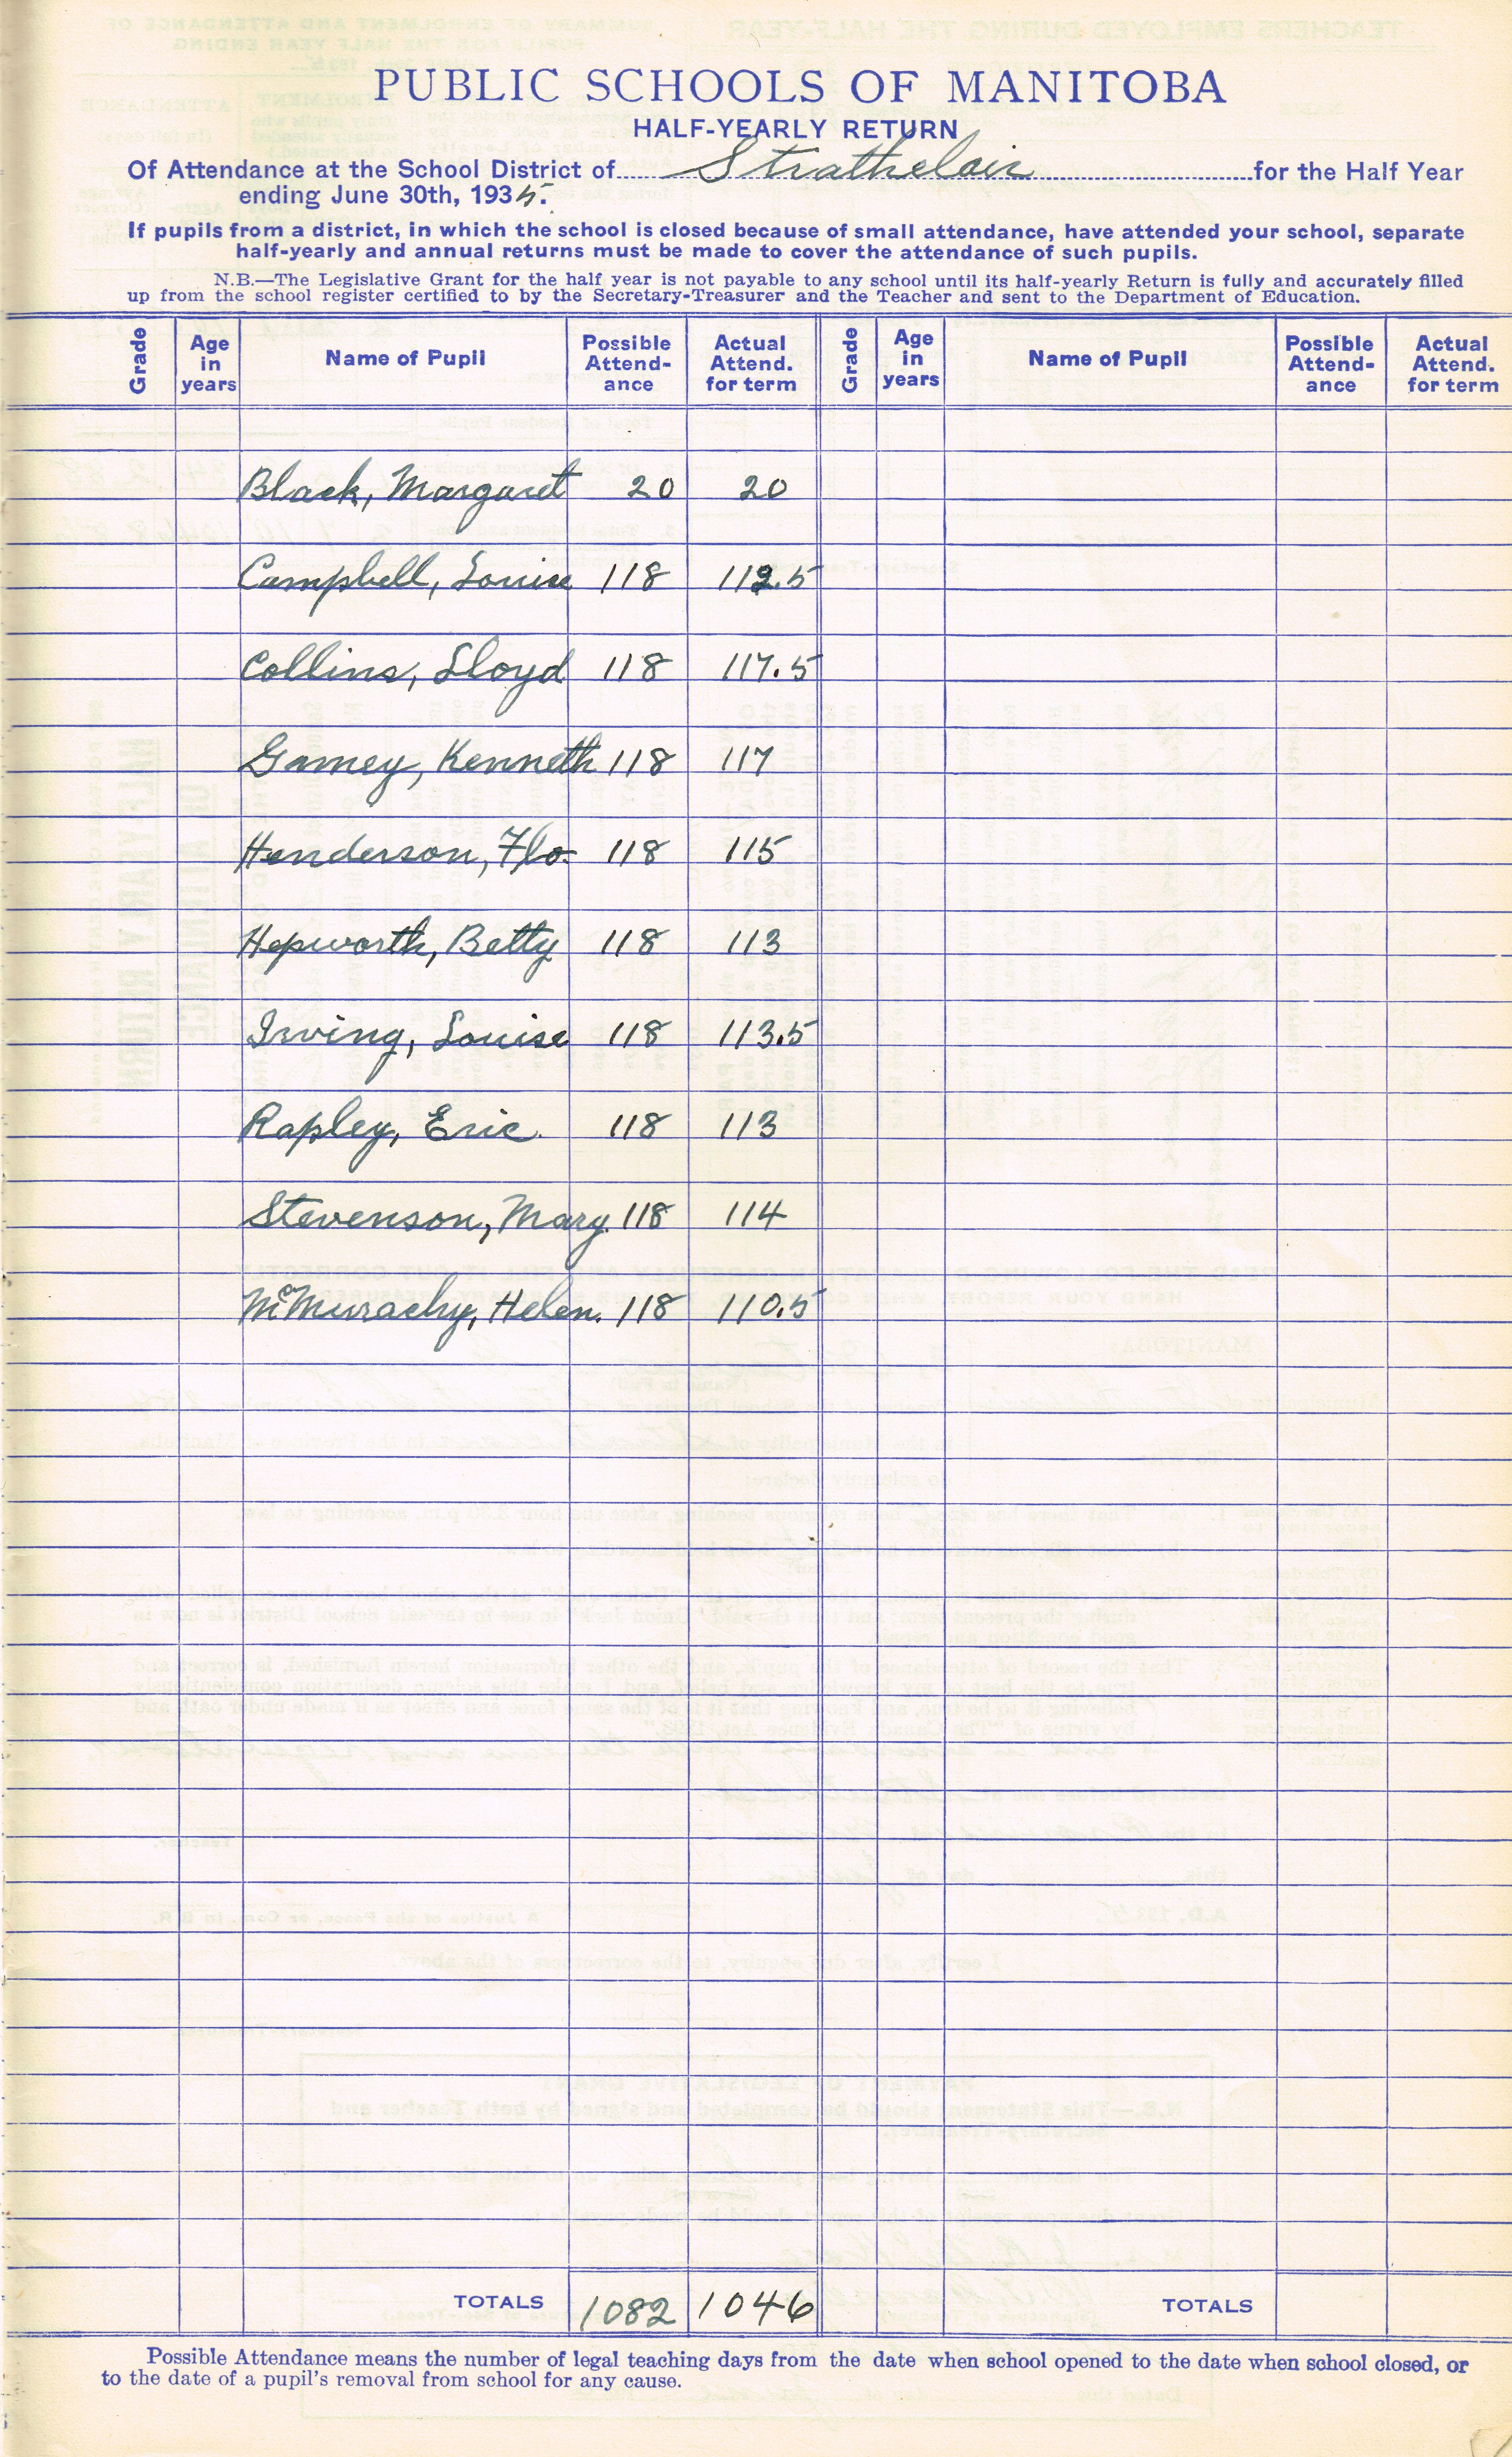 PUBLIC SCHOOLS OF MANITOBA
HALF-YEARLY RETURN
Of Attendance at the School District of Strathclair for the Half Year
ending June 30th, 1935.
If pupils from a district, in which the school is closed because of small attendance, have attended your school, separate
half-yearly and annual returns must be made to cover the attendance of such pupils.
N.B.—The Legislative Grant for the half year is not payable to any school until its half-yearly Return is fully and accurately filled
up from the school register certified to by the Secretary-Treasurer and the Teacher and sent to the Department of Education.
Grade Age in years Name of Pupil Possible Attend-ance Actual Attend. for term Grade Age in years Name of Pupil Possible Attend-ance Actual Attend. for term
Black, Margaret 20 20
Campbell, Louise 118 112.5
Collins, Lloyd 118 117.5
Gamey, Kenneth 118 117
Henderson, Flo. 118 115
Hepworth, Betty 118 113
Irving, Louise 118 113.5
Rapley, Eric. 118 113
Stevenson, Mary. 118 114
McMurachy, Helen. 118 110.5
TOTALS 1082 1046 TOTALS
Possible Attendance means the number of legal teaching days from the date when school opened to the date when school closed, or
to the date of a pupil's removal from school for any cause.